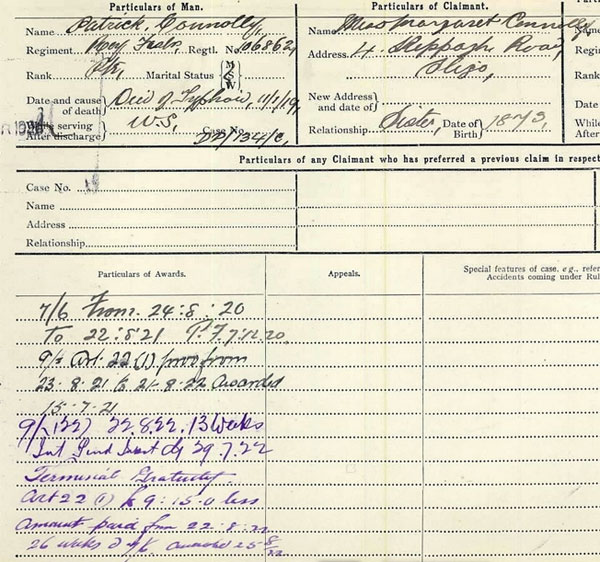 Particulars of Man.
Name Patrick Connolly,
Regiment Roy Fuslrs, Regtl. No. 106862
Rank Pte, Marital Status M S W
Date and cause of death Died of Typhoid, 11/1/19,
While serving W.S, Case No.
After discharge D2/734/C,
Particulars of Claimant.
Name Miss Margaret Connolly
Address 4. Road,
Sligo,
New Address and date of
Relationship Sister, Date of Birth 1873,
Name
Regi
Rank
Date
While
After
Particulars of any Claimant who has preferred a previous claim in respect
Case No.
Name
Address
Relationship
Particulars of Awards.
7/6 From. 24:8:20
To 22:8:21 P.F. 7.12.20.
9/- Art. 22 (1) from
23.8.21 to 21.8.22 Awarded
15.7.21
9/- (22) 22.8.22. 13 Weeks
29.7.22
Terminal Gratuity.
Art 22 (1) £9:15.0 less
amount paid from 22:8:22
26 weeks @ 7/6 awarded 25 8/22
Appeals.
Special features of case, e.g., refer
Accidents coming under Rul